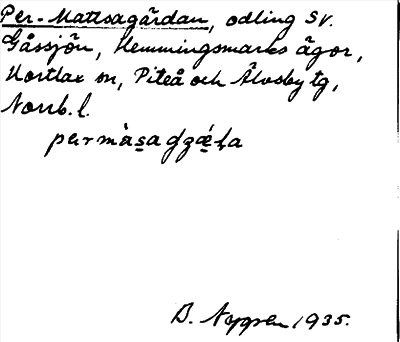 Per-Mattsagärdan, odling SV.
Gåssjön, Hemmingsmarks ägor,
Hortlax sn, Piteå och Älvsby tg,
Norrb. l.
D. Nygren 1935.